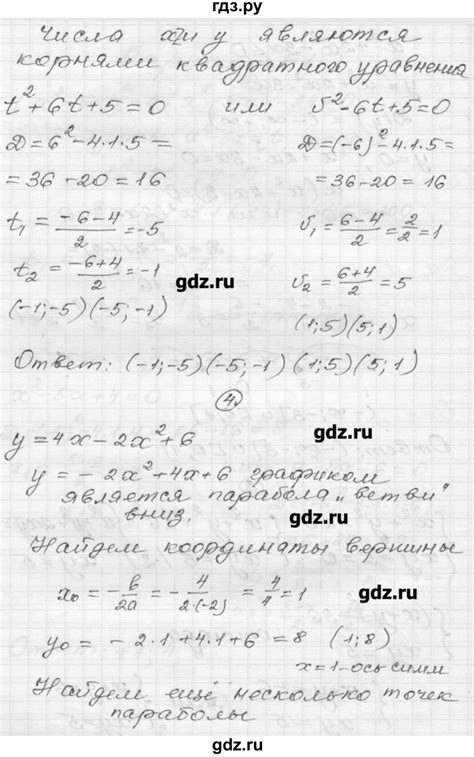 гдз.ру
Числа x и y являются
корнями квадратного уравнения
t²+6t+5=0 или υ²-6t+5=0
D=6²-4·1·5= D=(-6)²-4·1·5=
=36-20=16 =36-20=16
t₁=(-6-4)/2=-5 υ₁=(6-4)/2=2/2=1
t₂=(-6+4)/2=-1 υ₂=(6+4)/2=5
gdz.ru
(-1;-5)(-5;-1) (1;5)(5;1)
gdz.ru
Ответ: (-1;-5)(-5;-1)(1;5)(5;1)
4.
y=4x-2x²+6
y=-2x²+4x+6 графиком
является парабола, "ветви"
вниз.
gdz.ru
Найдем координаты вершины
x₀=-b/2a=-4/2·(-2)=4/4=1
gdz.ru
y₀=-2·1+4·1+6=8 (1;8)
x=1-ось симм
Найдем ещё несколько точек
параболы
gdz.ru